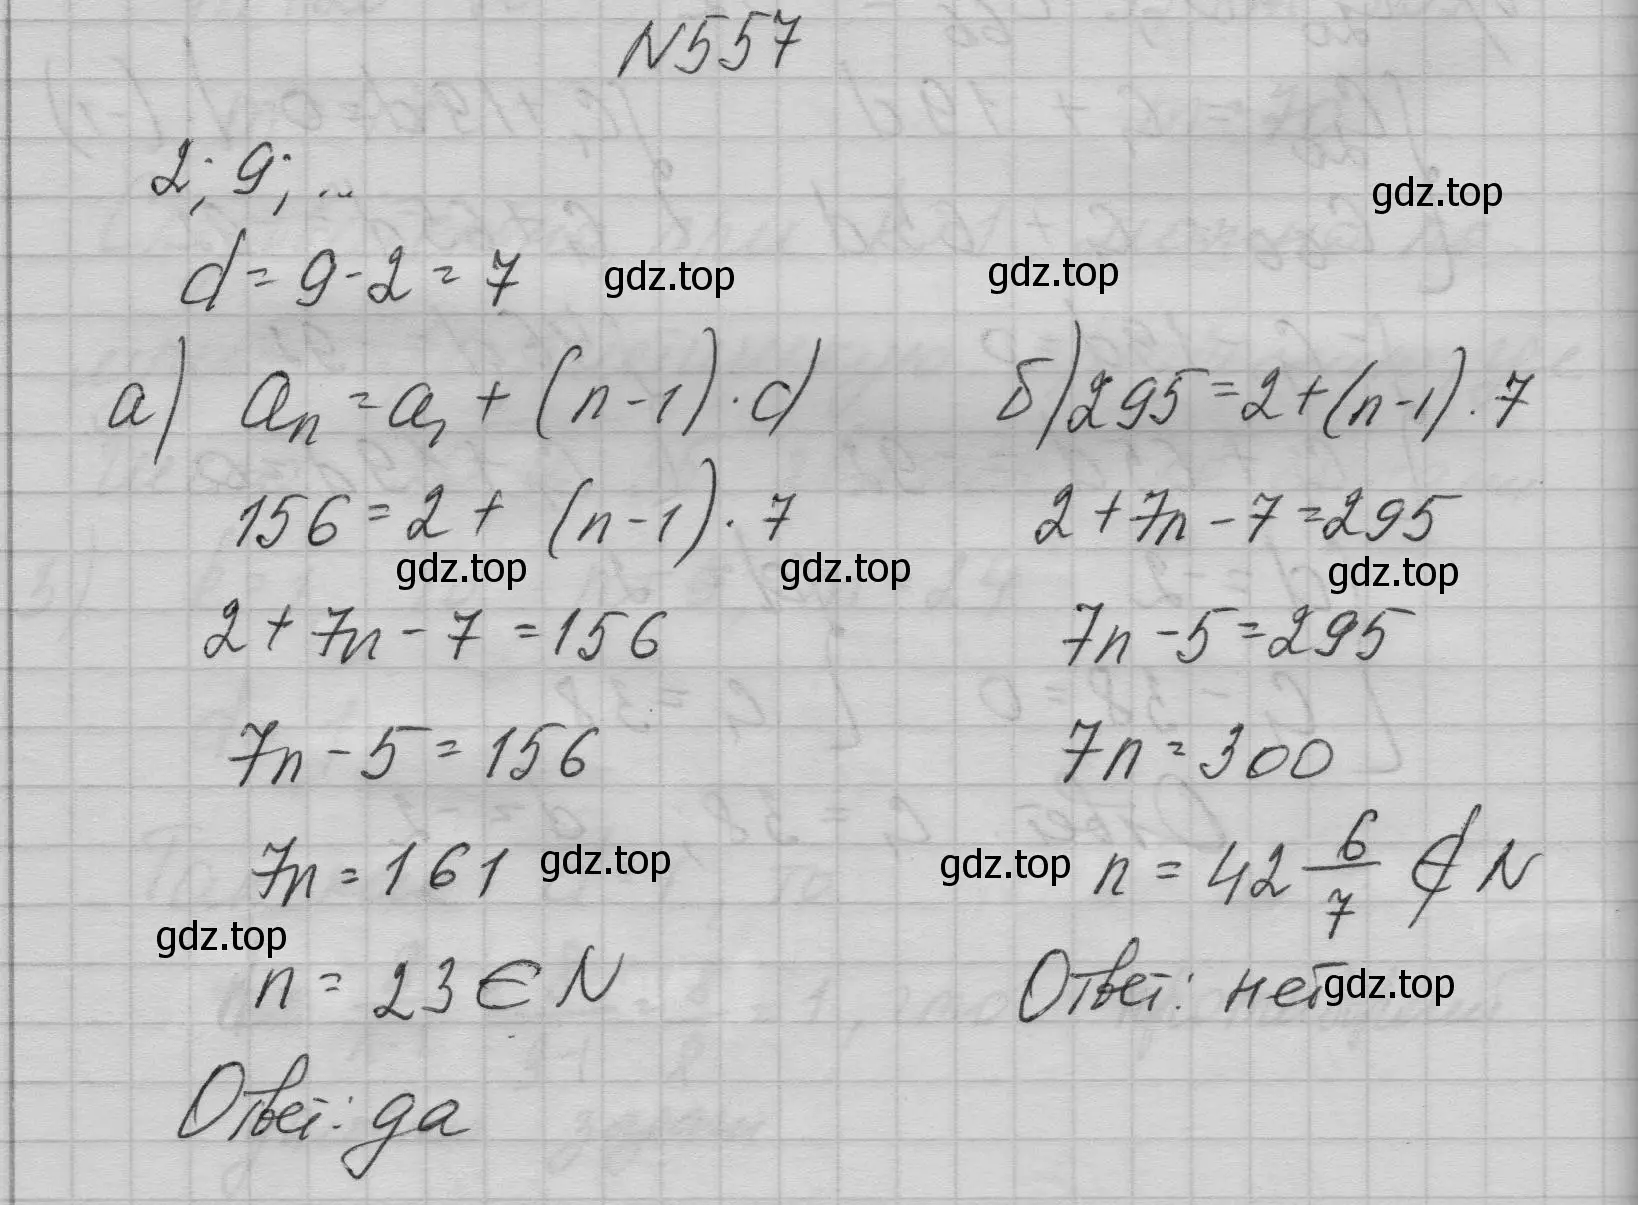 N557
2; 9; ...
gdz.top
d = 9 - 2 = 7 gdz.top gdz.top
а) aₙ = a₁ + (n-1)·d
156 = 2 + (n-1)·7
gdz.top gdz.top
2 + 7n - 7 = 156
7n - 5 = 156
7n = 161 gdz.top
gdz.top
n = 23 ∈ N
Ответ: да
б) 295 = 2 + (n-1)·7
2 + 7n - 7 = 295
gdz.top
7n - 5 = 295
7n = 300
gdz.top n = 42 6/7 ∉ N
Ответ: нет gdz.top